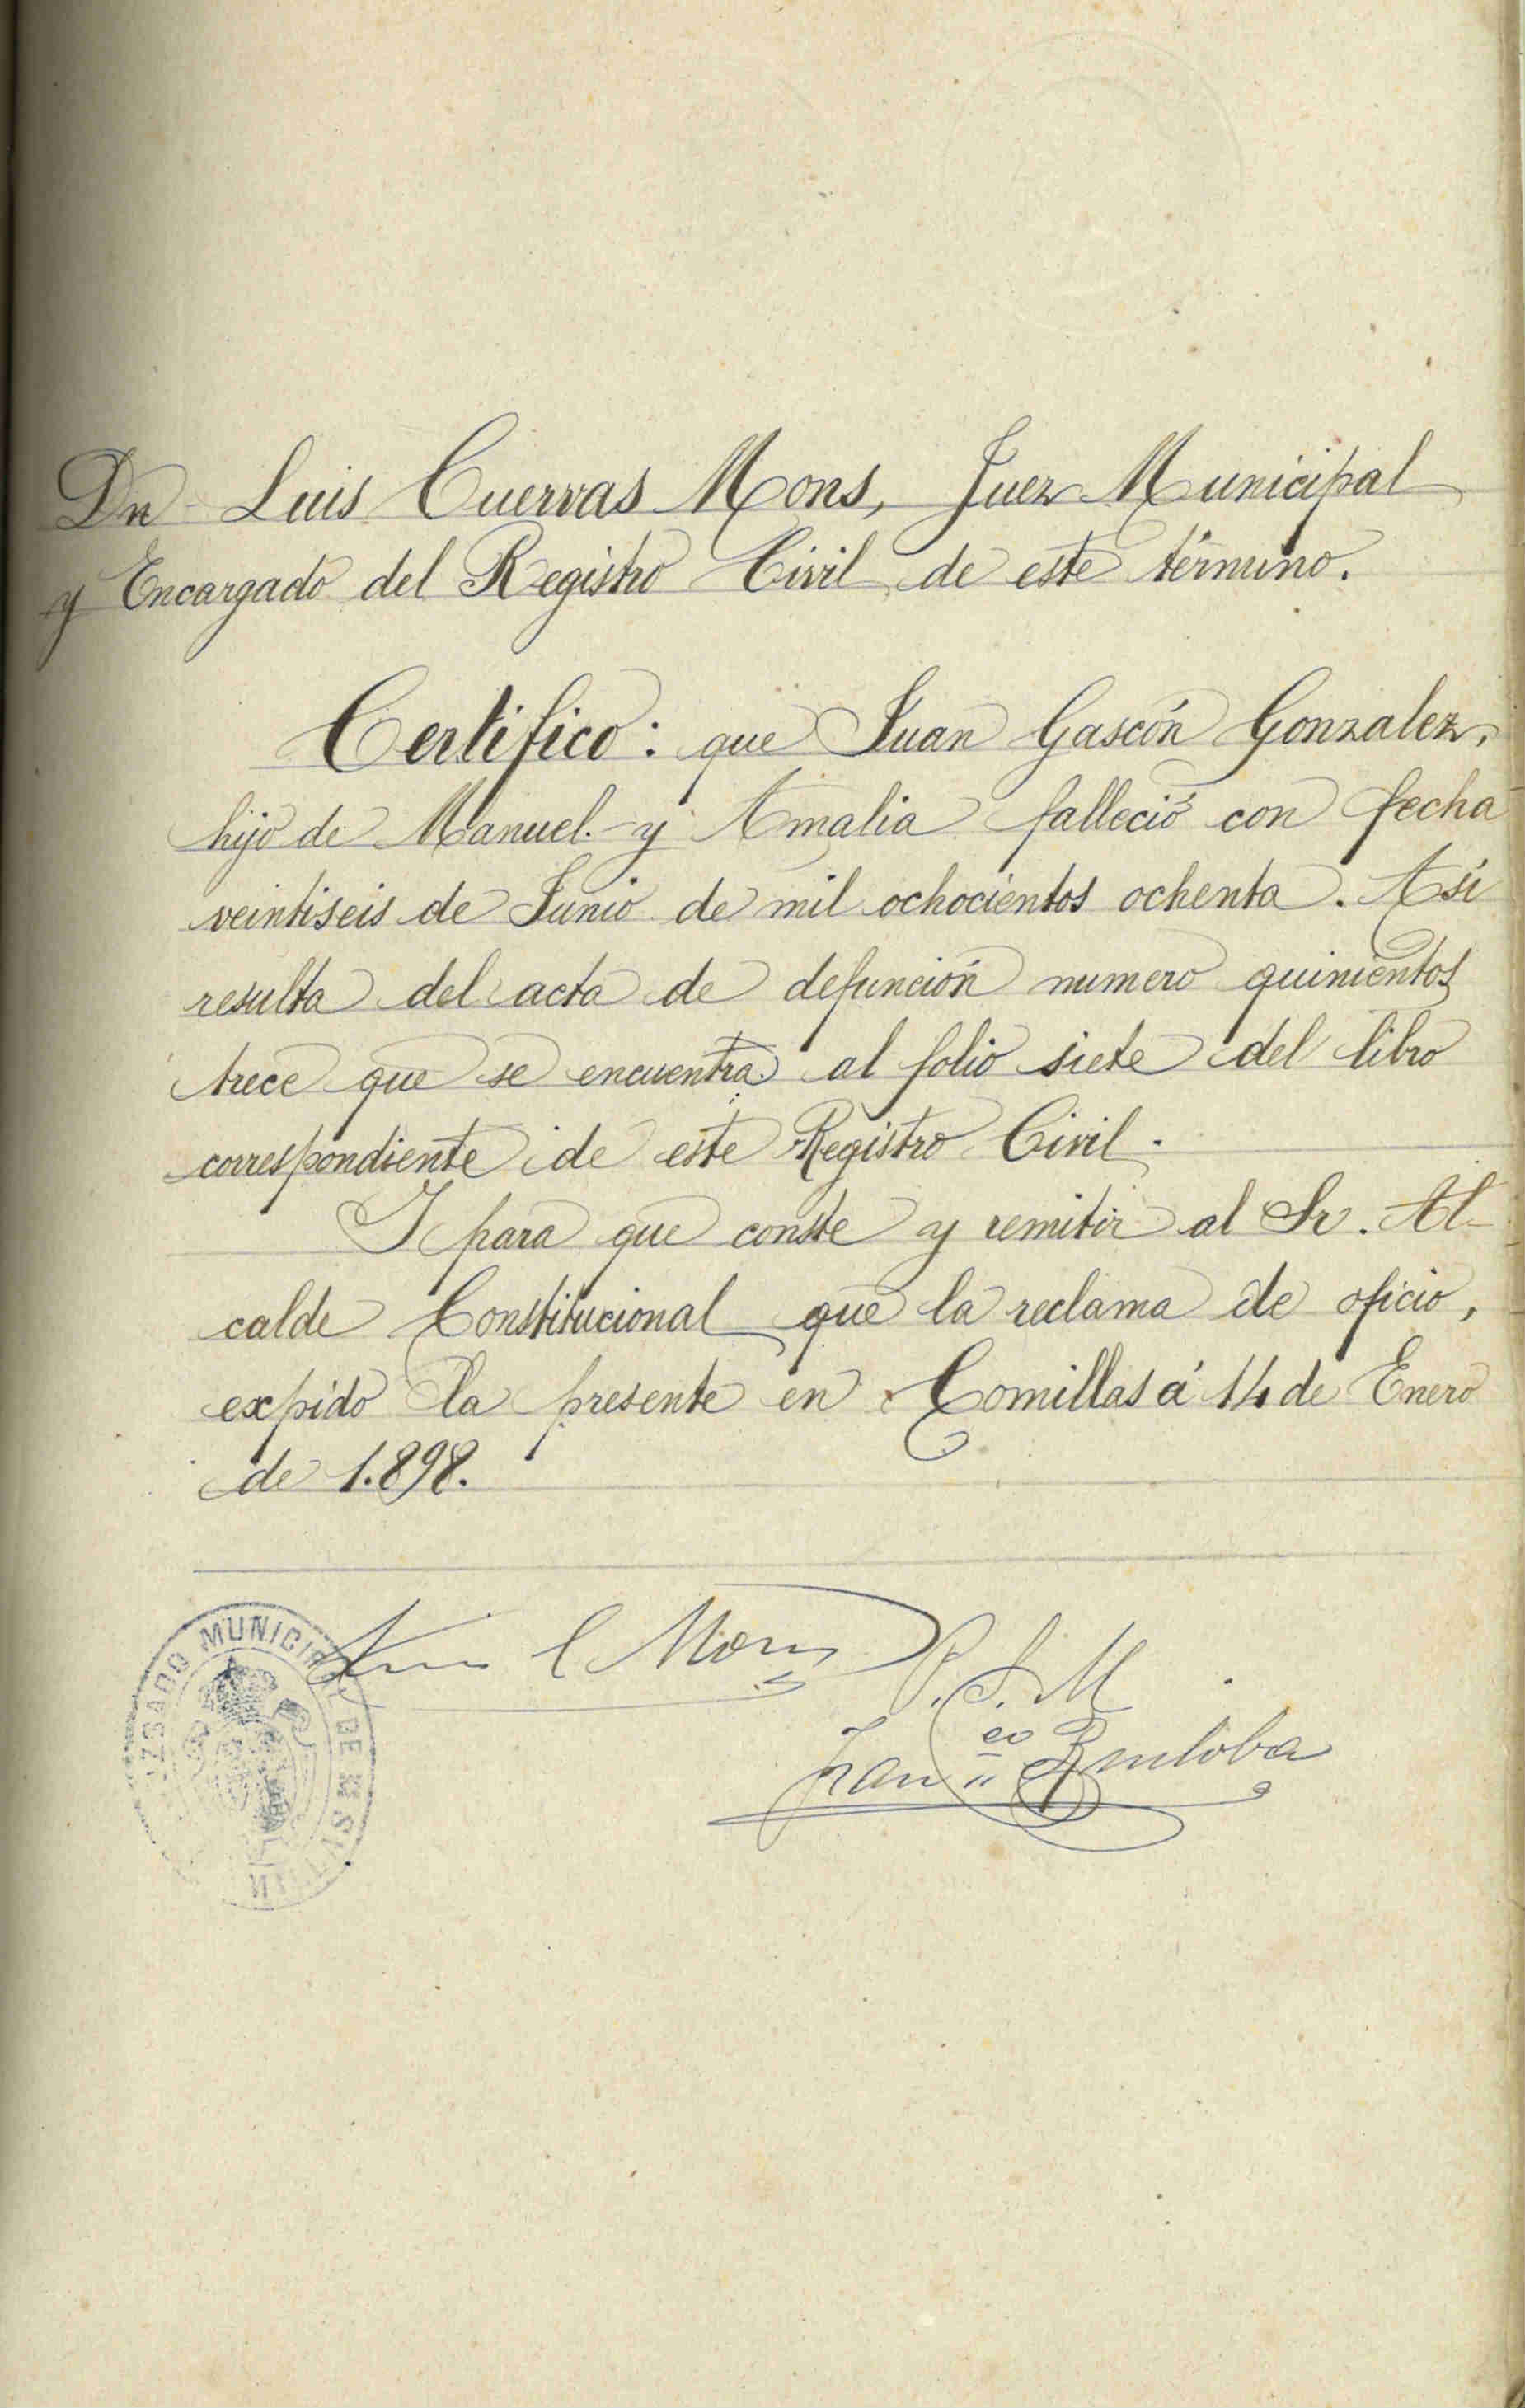 Dn Luis Cuervas Mons, Juez Municipal
y Encargado del Registro Civil de este término.
Certifico: que Juan Gascón Gonzalez,
hijo de Manuel y Amalia falleció con fecha
veintiseis de Junio de mil ochocientos ochenta. Así
resulta del acta de defunción numero quinientos
trece que se encuentra al folio siete del libro
correspondiente de este Registro Civil.
Y para que conste y remitir al Sr. Al-
calde Constitucional que la reclama de oficio,
expido la presente en Comillas á 14 de Enero
de 1.898.
Luis C Mons
P. S. M.
Fran co
MUNICIPAL DE